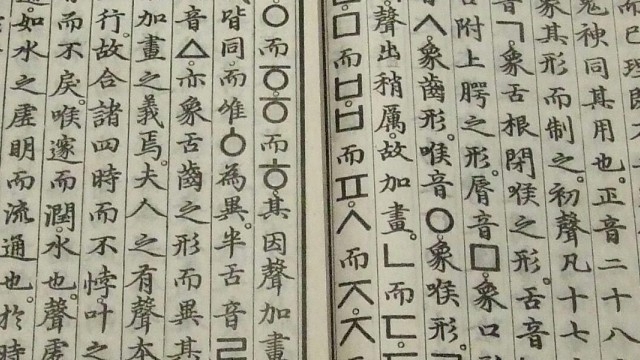 而已理
鬼神同其用也。正音二十八
象其形而制之。初聲凡十七
音ㄱ。象舌根閉喉之形。舌音
附上腭之形。脣音ㅁ。象口
音ㅅ。象齒形。喉音ㅇ。象喉形。
聲出稍厲。故加畫。ㄴ而ㄷ。
ㅁ而ㅂ。ㅂ而ㅍ。ㅅ而ㅈ。ㅈ
ㅇ而ㆆ。ㆆ而ㅎ。其因聲加畫
皆同。而唯ㆁ為異。半舌音ㄹ
音ㅿ。亦象舌齒之形而異其
加畫之義焉。夫人之有聲本
行。故合諸四時而不悖。叶之
而不戾。喉邃而潤。水也。聲虛
如水之虛明而流通也。於時